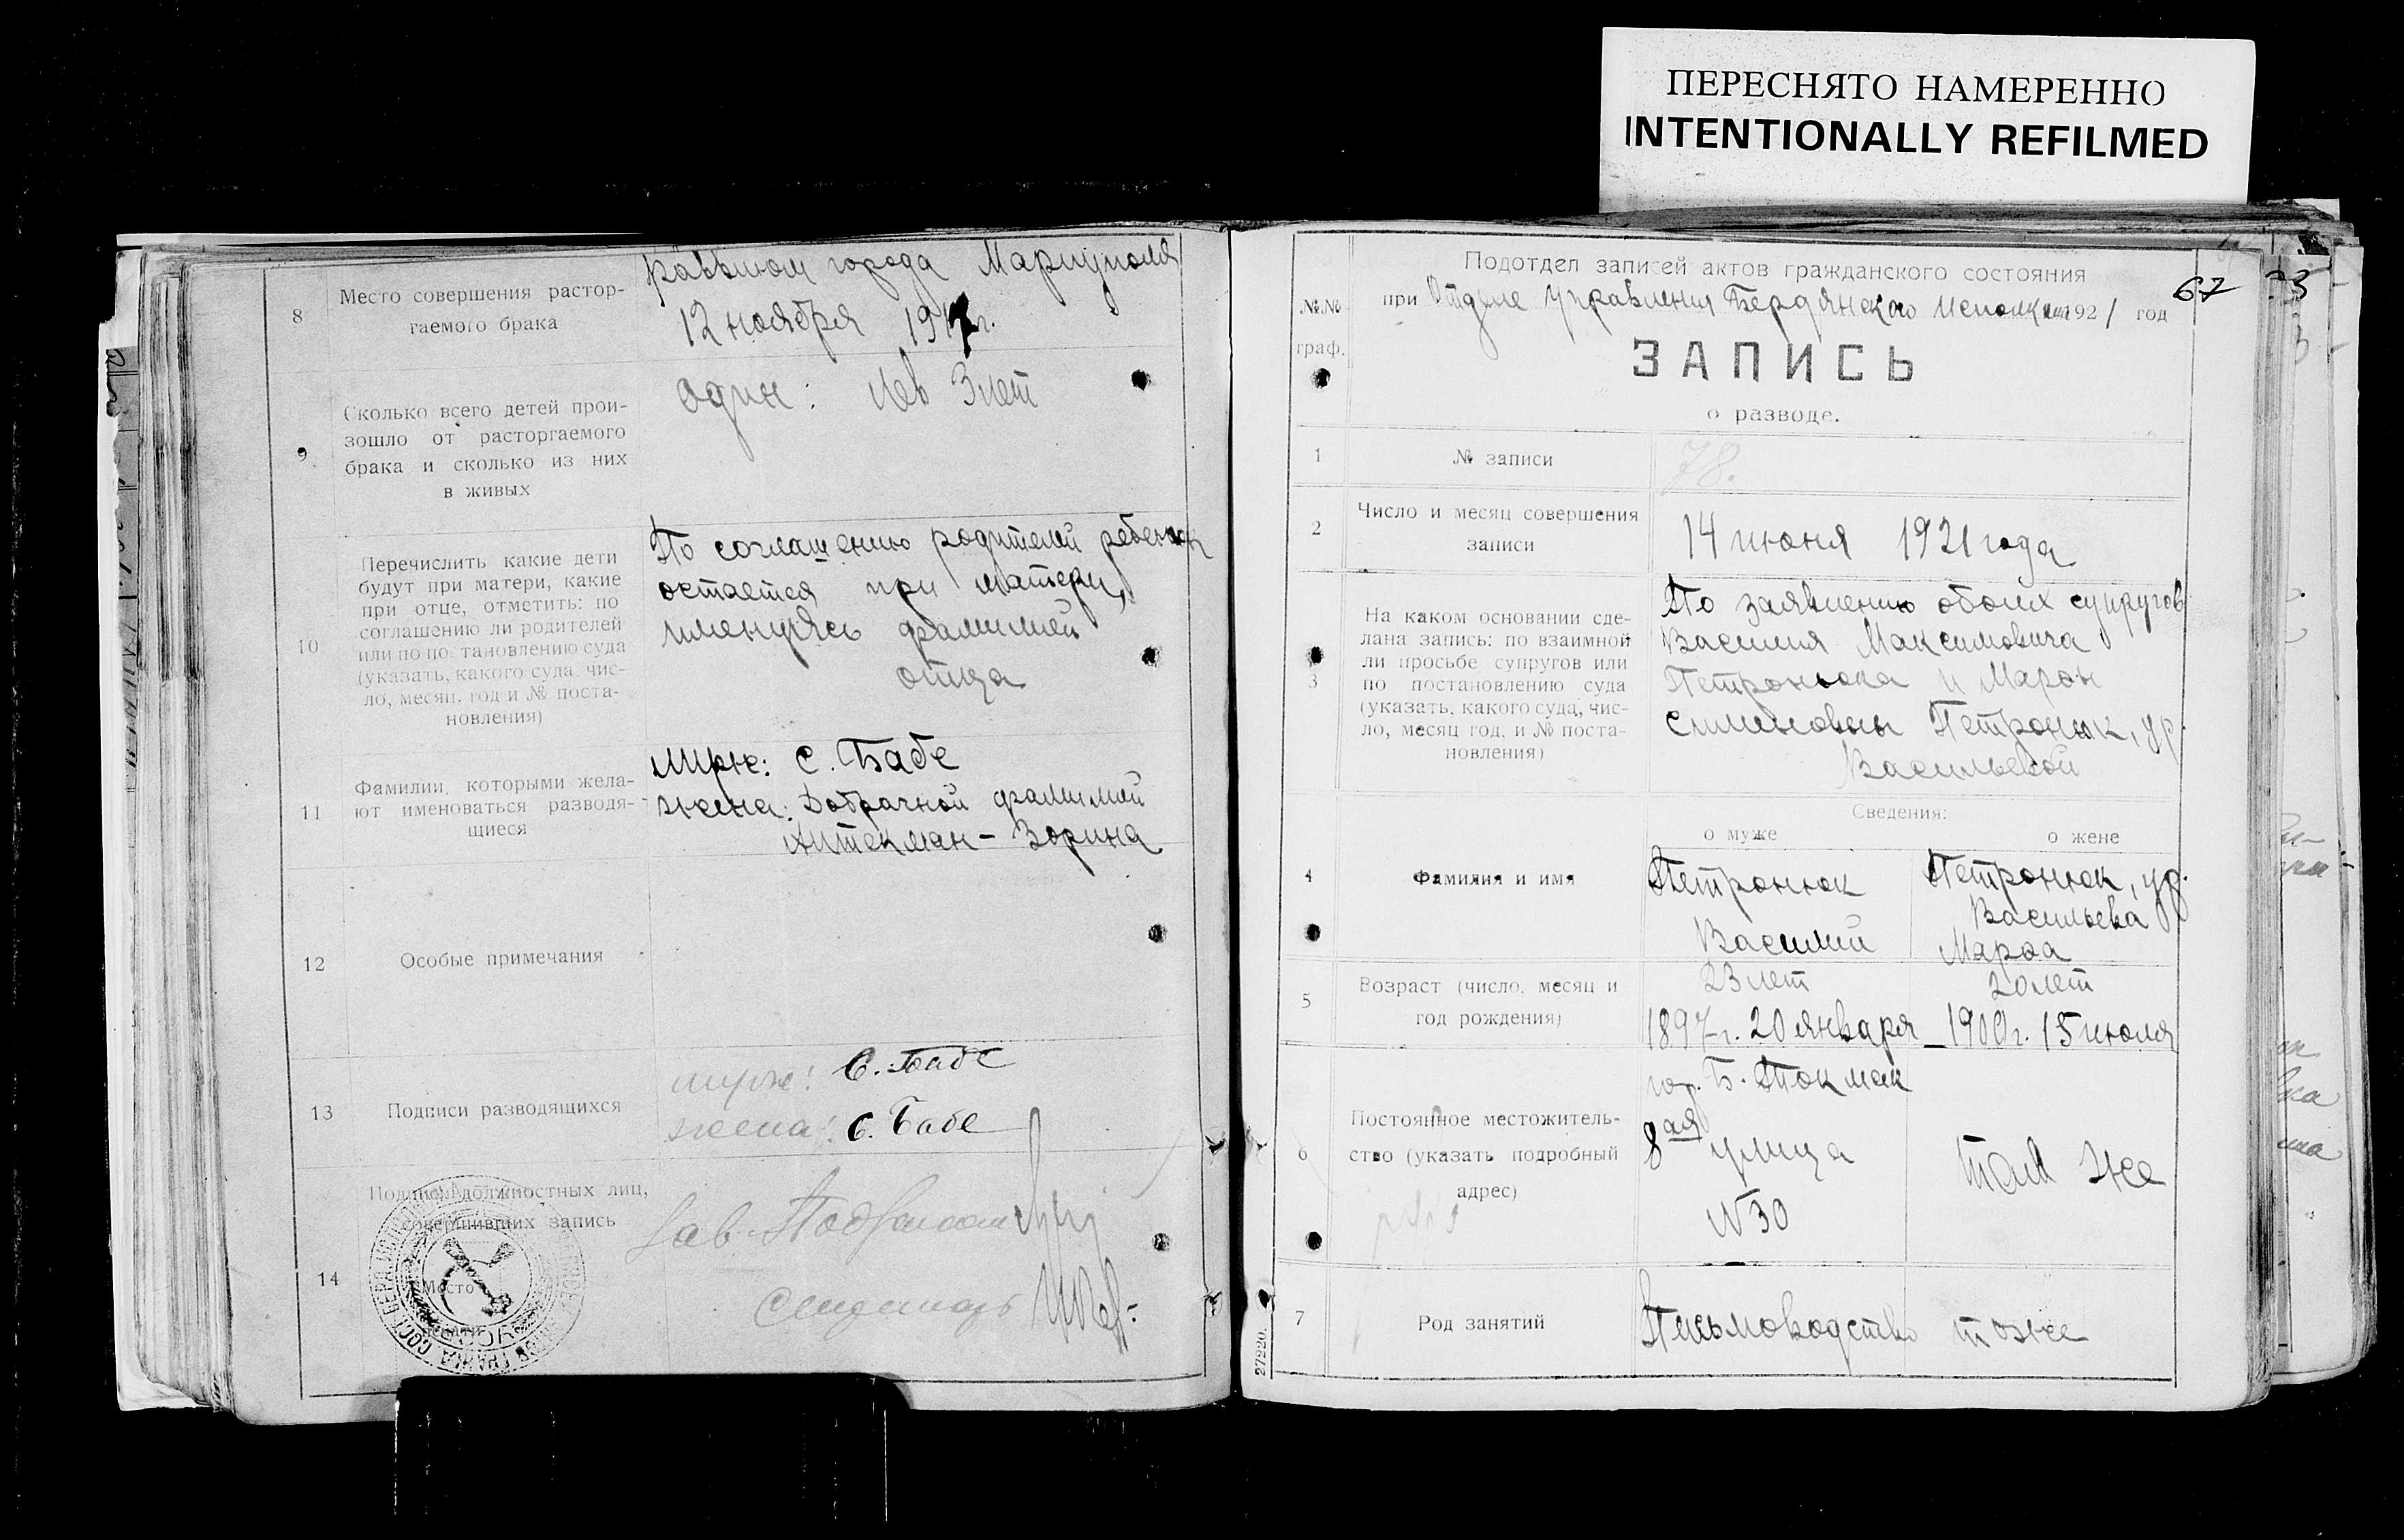 ПЕРЕСНЯТО НАМЕРЕННО
INTENTIONALLY REFILMED
8
Место совершения растор-
гаемого брака
города Мариуполя
12 ноября 1917 г.
9
Сколько всего детей прои-
зошло от расторгаемого
брака и сколько из них
в живых
один: Лев 3 лет
10
Перечислить какие дети
будут при матери, какие
при отце, отметить: по
соглашению ли родителей
или по постановлению суда
(указать, какого суда, чис-
ло, месяц, год и № поста-
новления)
По соглашению родителей ребенок
остается при матери,
именуясь фамилией
отца
11
Фамилии, которыми жела-
ют именоваться разводя-
щиеся
Муж: С. Бабе
жена: Добрачной фамилией
Аптекман-Зорина
12
Особые примечания
13
Подписи разводящихся
муж: С. Бабе
жена: С. Бабе
14
Подписи должностных лиц,
совершивших запись
Место
печати
Зав.
67
№.№
граф.
Подотдел записей актов гражданского состояния
при Отделе Управления Бердянского Исполкома 1921 год
ЗАПИСЬ
о разводе.
1
№ записи
78.
2
Число и месяц совершения
записи
14 июня 1921 года
3
На каком основании сде-
лана запись: по взаимной
ли просьбе супругов или
по постановлению суда
(указать, какого суда, чис-
ло, месяц год, и № поста-
новления)
По заявлению обоих супругов
Василия Максимовича
Петронюка и Марфы
Семеновны Петронюк, ур.
Васильевой
Сведения:
о муже
о жене
4
Фамилия и имя
Петронюк
Василий
Петронюк, ур.
Васильева
Марфа
5
Возраст (число, месяц и
год рождения)
23 лет
1897 г. 20 января
20 лет
1900 г. 15 июля
6
Постоянное местожитель-
ство (указать подробный
адрес)
гор. Б. Токмак
8ая улица
№ 30
там же
7
Род занятий
Письмоводство
тоже
27220.